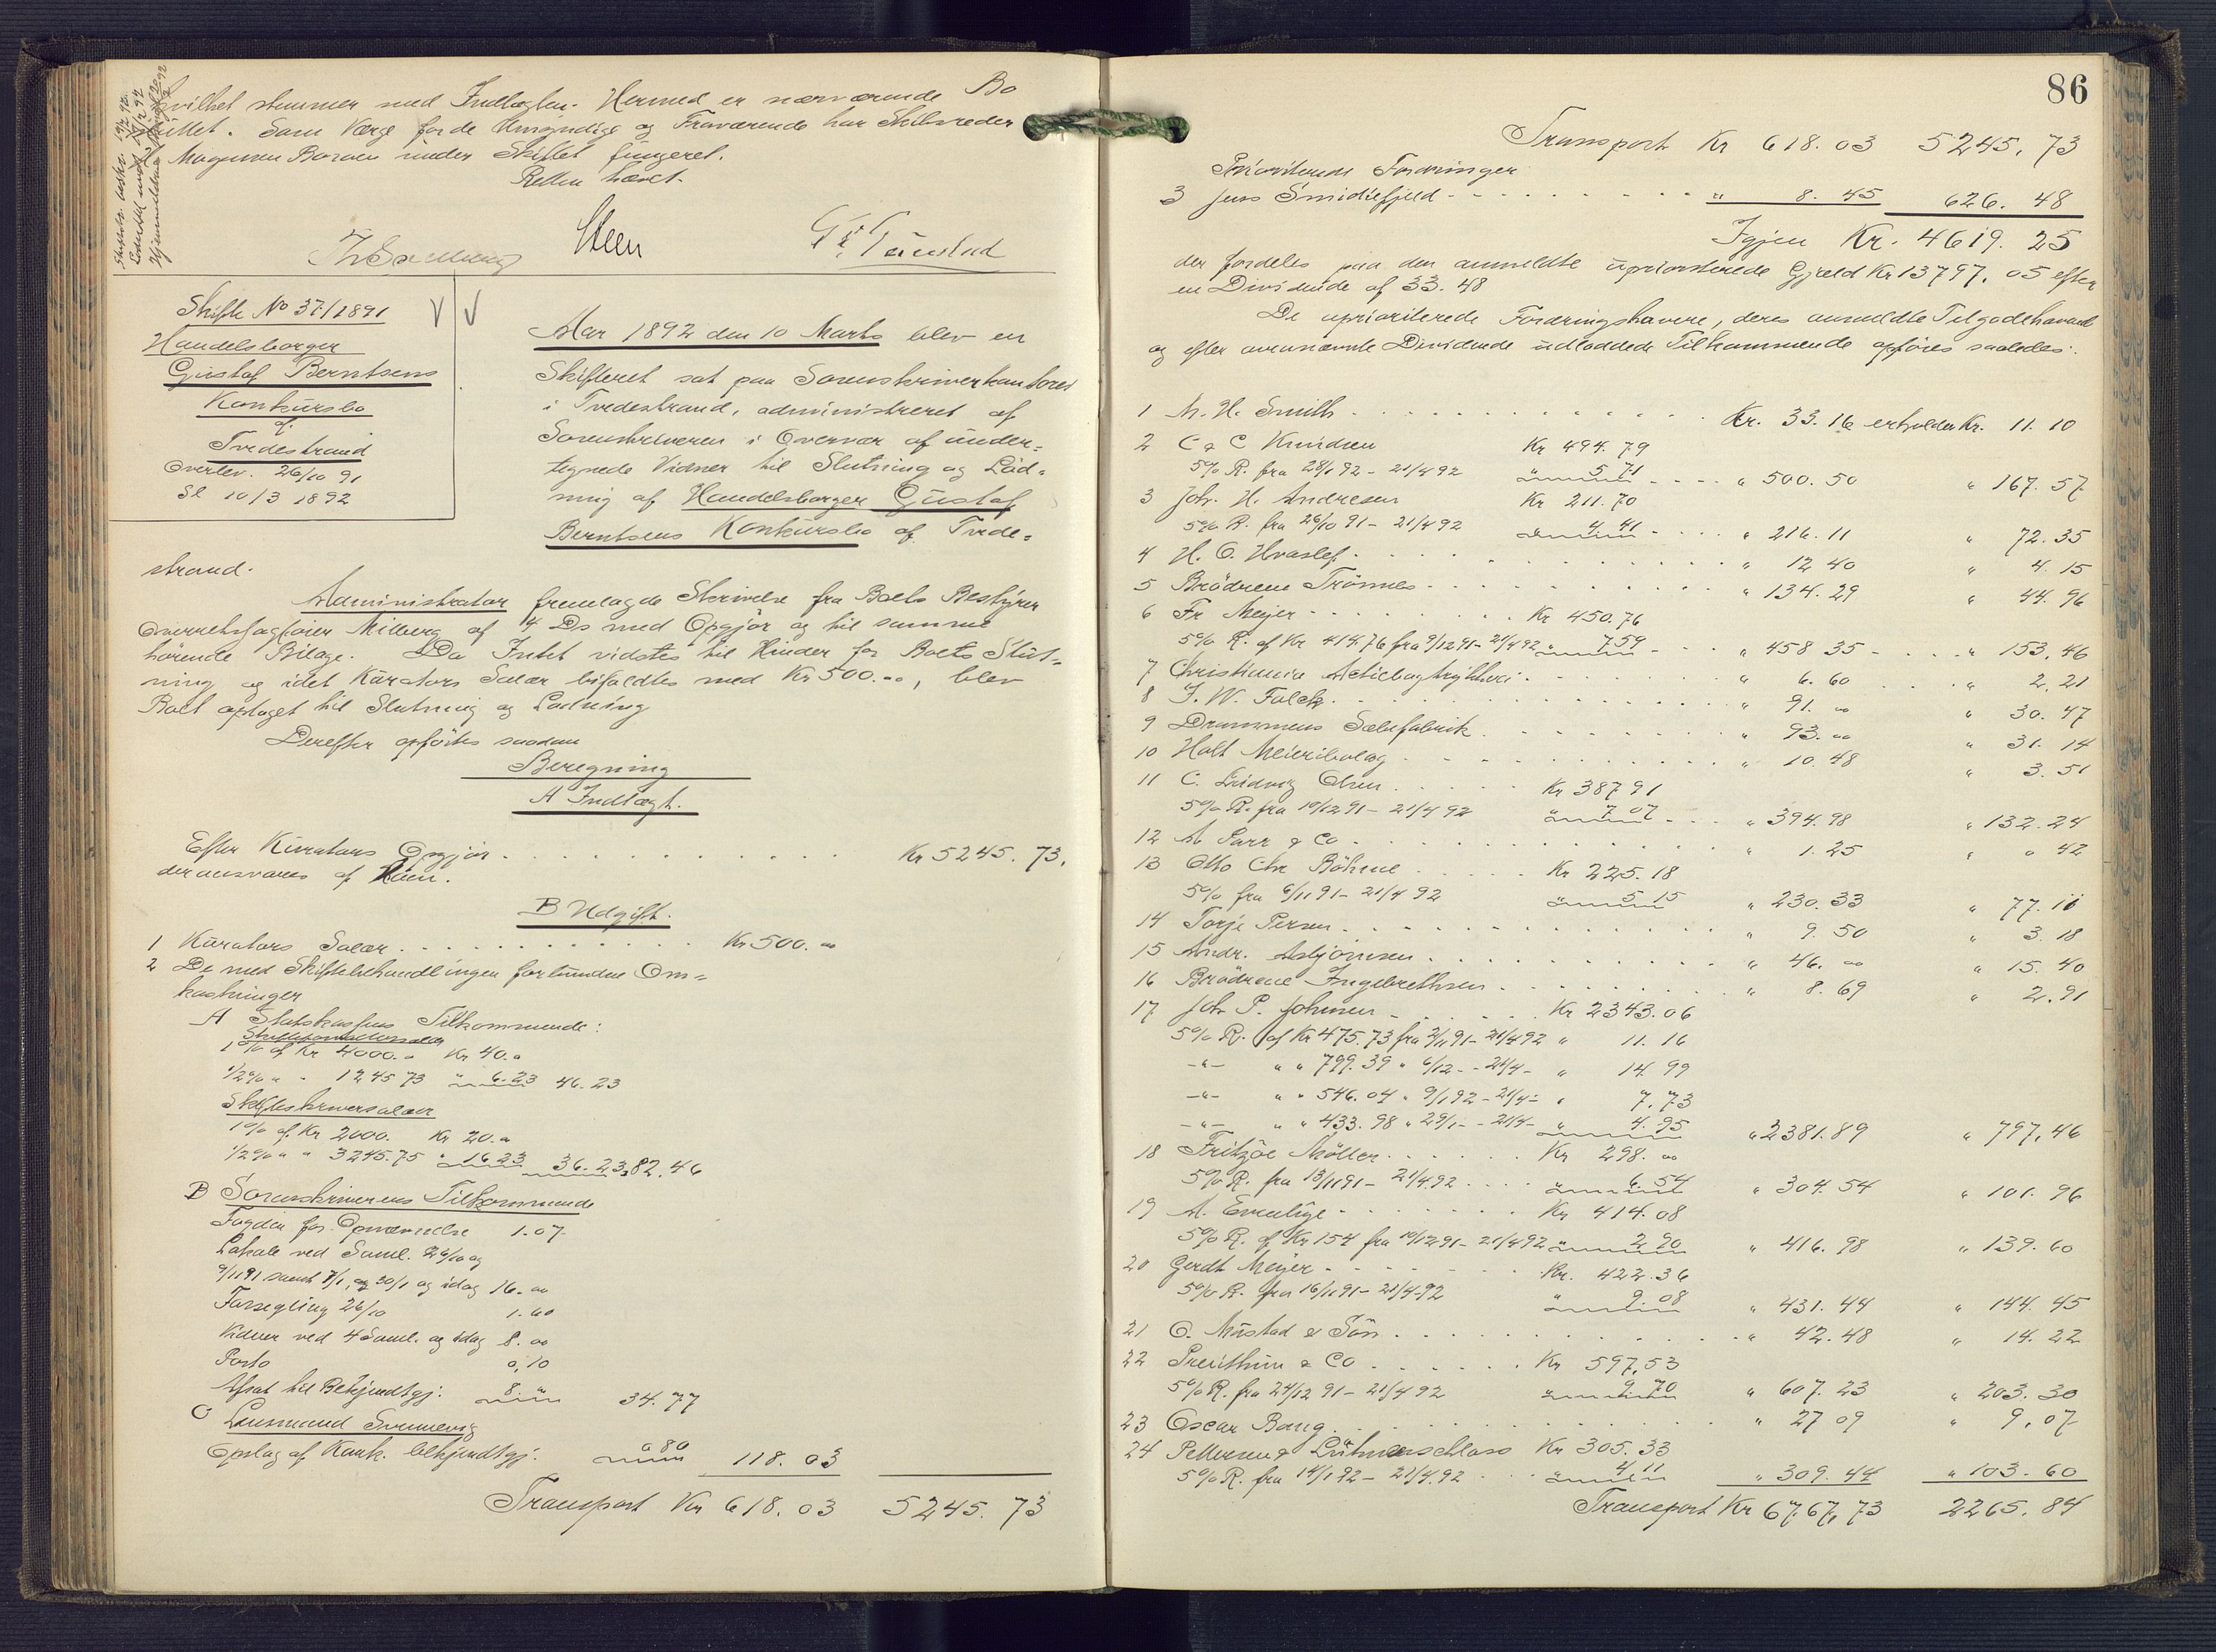 hvilket stemmer med Indtægten. Hermed er nærværende Bo
sluttet. Som Værge for de Umyndige og Fraværende har Skibsreder
Magnus Boroen under Skiftet fungeret.
Retten hævet.
Steen
Skifte No 37/1891
Handelsborger
Gustaf Berntsens
Konkursbo
af
Tvedestrand
Overlev. 26/10 91
Sl 10/3 1892
Aar 1892 den 10 Marts blev en
Skifteret sat paa Sorenskriverkontoret
i Tvedestrand, administreret af
Sorenskriveren i Overvær af under-
tegnede Vidner til Slutning og Lod-
ning af Handelsborger Gustaf
Berntsens Konkursbo af Tvede-
strand.
Administrator fremlagde Skrivelse fra Boets Bestyrer
Overretssagfører Milberg af 4 Ds med Opgjør og til samme
hørende Bilage. Da Intet vidstes til Hinder for Boets Slut-
ning og idet Kurators Salær bifaldtes med Kr 500.00, blev
Boet optaget til Slutning og Lodning
Derefter opførtes saadan
Beregning
A Indtægt.
Efter Kurators Opgjør . . . . . . . . Kr 5245. 73.
der ansvares af Ham.
B Udgift.
1 Kurators Salær . . . . . . . . Kr 500. 00
2 De med Skiftebehandlingen forbundne Om-
kostninger
A Statskassens Tilkommende:
1 % af Kr 4000. " Kr 40. "
1/2% " " 1245 73 " 6.23 46.23
Skifteskriversalær
1 % af Kr 2000. Kr 20. "
1/2% " " 3245.75 " 16 23 36.23 82.46
B Sorenskriverens Tilkommende
Fogden for Opnævnelse 1.07
Lokale ved Saml. 26/10 og
9/11 91 samt 7/1, og 30/1 og idag 16. 00
Forsegling 26/10 1.60
Vidner ved 4 Saml. og idag 8. 00
Porto 0,10
Afsat til Bekjendtgj. 8. " 34. 77
C Lensmand Svennevig
Opslag af Konk. bekjendtgj. 0 80 118. 03
Transport Kr 618. 03 5245. 73
86
Transport Kr 618. 03 5245. 73
Prioriterede Fordringer
3 Jens Smidiefjeld - - - - - " 8. 45 626. 48
Igjen Kr. 4619. 25
der fordeles paa den anmeldte uprioriterede Gjæld Kr 13797. 05 efter
en Dividende af 33. 48
De uprioriterede Fordringshavere, deres anmeldte Tilgodehavende
og efter ovennævnte Dividende udloddede Tilkommende opføres saaledes:
1 M. H. Smith . . . . . Kr. 33. 16 erholder Kr. 11. 10
2 C & C Knudsen Kr 494. 79
5% R. fra 28/1 92 - 21/4 92 " 5 71 - - - " 500. 50 " 167. 57
3 Joh. H. Andresen Kr 211. 70
5% R. fra 26/10 91 - 21/4 92 " 4 41 - - - " 216. 11 " 72. 35
4 H. O. Hvaslef . . . . . " 12 40 " 4. 15
5 Brødrene Trønnes . . . . . " 134. 29 " 44. 96
6 Fr Meyer . . . . . Kr 450. 76
5% R. af Kr 414.76 fra 9/12 91 - 21/4 92 " 7 59 - - " 458 35 - . . . " 153, 46
7 Christiania Actiebogtrykkeri . . . . . " 6. 60 . . . " 2. 21
8 J. W. Falck . . . . . " 91. 00 " 30. 47
9 Drammens Sæbefabrik . . . . . " 93. 00 " 31. 14
10 Holt Meieribolag . . . . . " 10. 48 " 3. 51
11 C. Ludvig Olsen . . . . . Kr 387 91
5% R. fra 10/12 91 - 21/4 92 " 7 07 - - - " 394. 98 " 132. 24
12 A Parr & Co . . . . . " 1. 25 " 0 42
13 Otto Chr Böhme . . . . . Kr 225. 18
5% fra 6/11 91 - 21/4 92 " 5 15 " 230. 33 " 77. 11
14 Torje Persen . . . . . " 9. 50 " 3. 18
15 Andr. Asbjörnsen . . . . . " 46. 00 " 15. 40
16 Brödrene Ingebrethsen . . . . . " 8. 69 " 2. 91
17 Joh P. Johnsen - . . . . Kr 2343. 06
5% R. af Kr 475. 73 fra 2/11 91 - 21/4 92 " 11. 16
-"- " " 799. 39 " 6/12 - - 21/4 - " 14. 99
-"- " " 546. 04 " 9/1 92 - 21/4 - " 7. 73
-"- " " 433. 98 " 29/1 - - 21/4 - " 4. 95 " 2381. 89 " 797, 46
18 Fritzöe Möller . . . . . Kr 298. 00
5% R. fra 13/11 91 - 21/4 92 . . . . " 6. 54 " 304. 54 " 101. 96
19 A. Evenlige - - - - - Kr 414. 08
5% R. af Kr 154 fra 10/12 91 - 21/4 92 " 2 90 " 416. 98 " 139. 60
20 Gerdt Meyer - - - - - Kr. 422. 36
5% R. fra 16/11 91 - 21/4 92 " 9. 08 " 431. 44 " 144. 45
21 O. Mustad & Sön . . . . . " 42. 48 " 14. 22
22 Preuthun & Co . . . . . Kr 597, 53
5% R. fra 24/12 91 - 21/4 92 " 9 70 " 607. 23 " 203. 30
23 Oscar Bang . . . . . " 27 09 " 9. 07
24 Pettersen & Lührenschloss Kr 305. 33
5% R. fra 14/1 92 - 21/4 92 . . " 4 11 " 309. 44 " 103. 60
Transport Kr 6767, 73 2265. 84